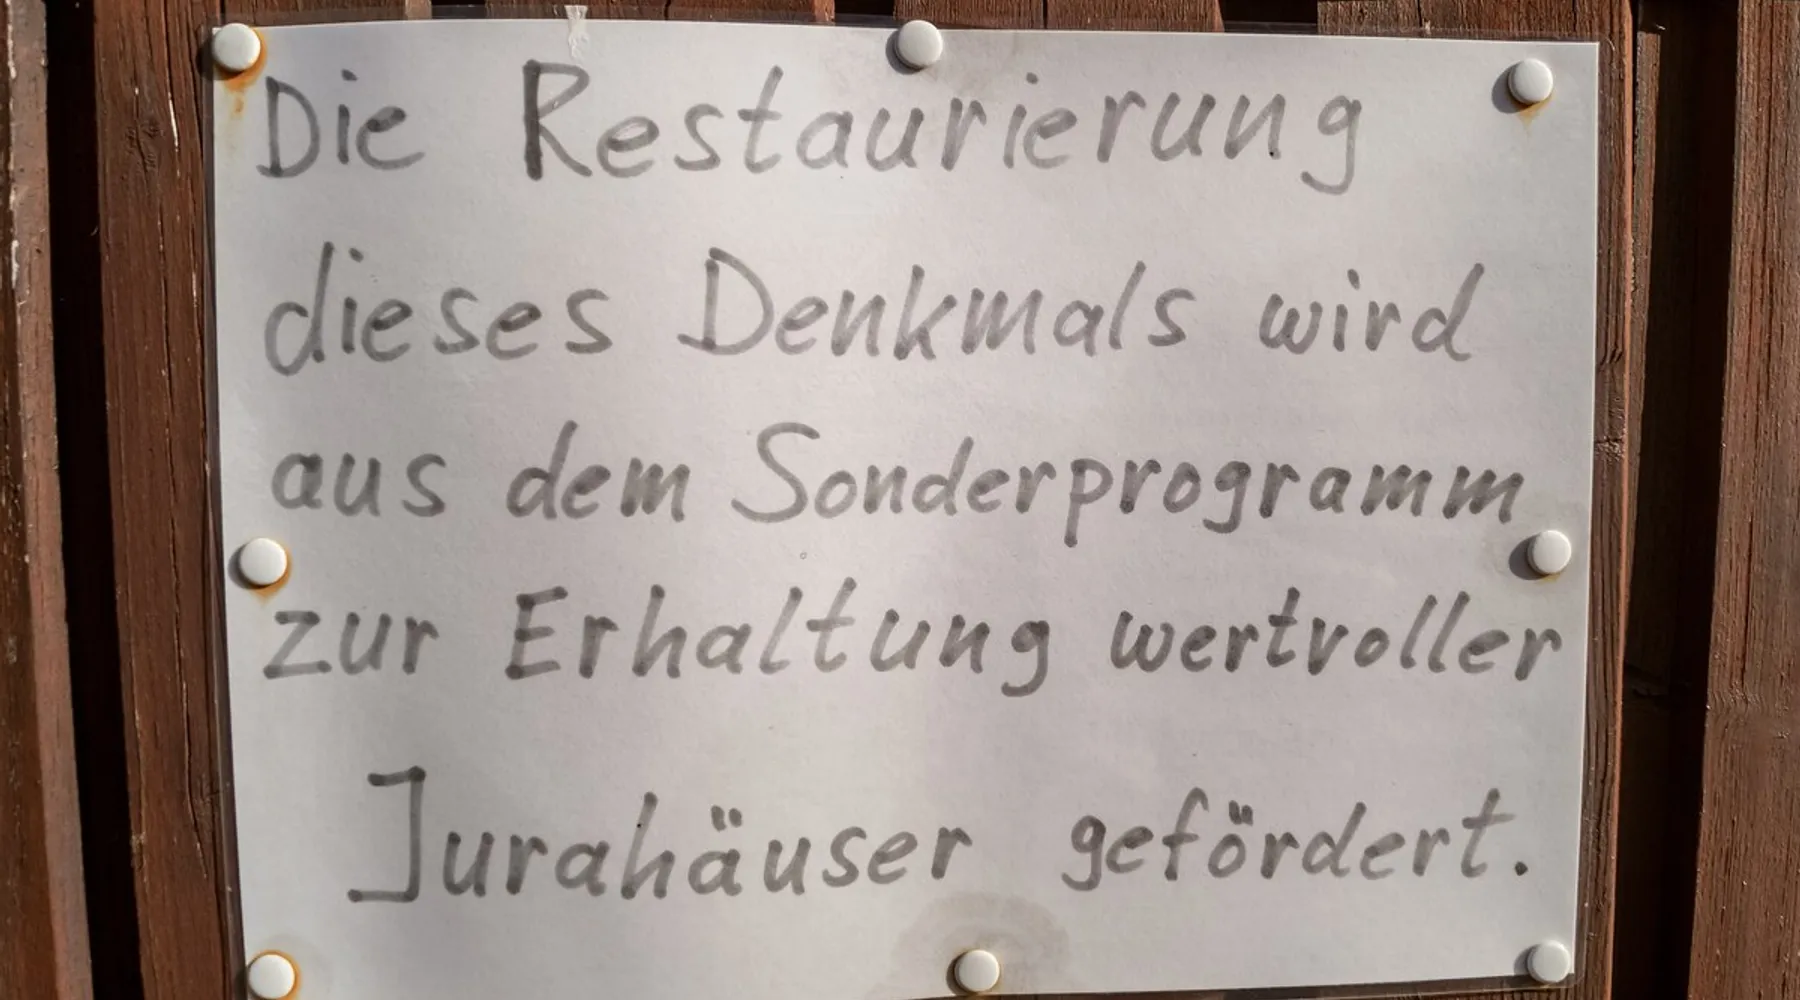 Die Restaurierung
dieses Denkmals wird
aus dem Sonderprogramm
zur Erhaltung wertvoller
Jurahäuser gefördert.